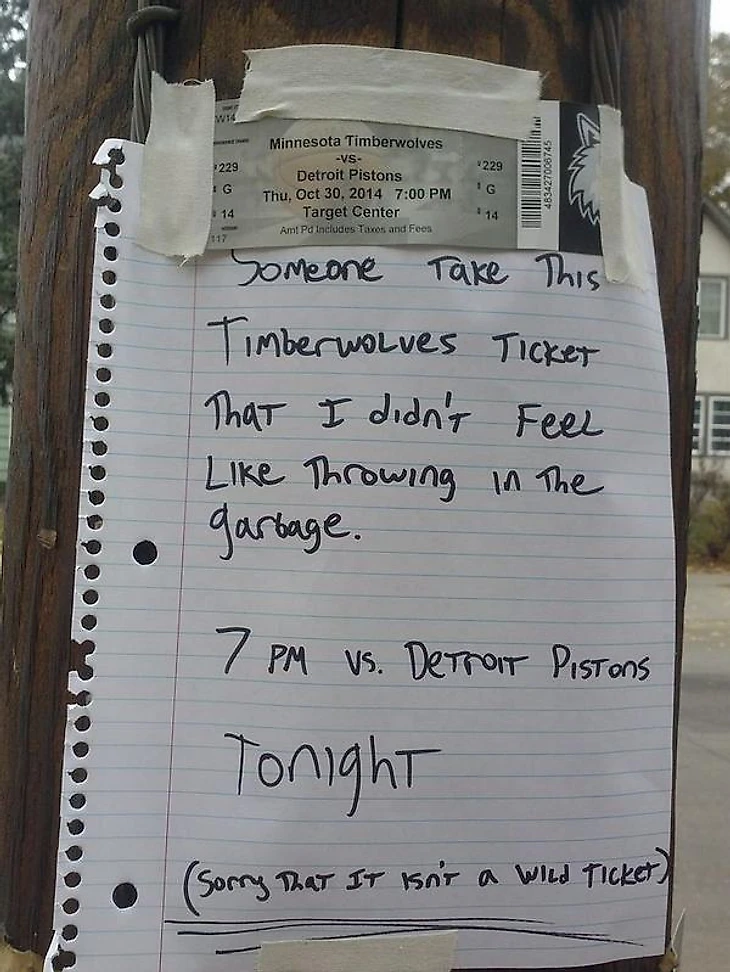 W14
Minnesota Timberwolves
-vs-
229 Detroit Pistons 229
G Thu, Oct 30, 2014 7:00 PM G
14 Target Center 14
Amt Pd Includes Taxes and Fees
117
483427006745
Someone Take This
Timberwolves Ticket
That I didn't Feel
Like Throwing in The
garbage.
7 PM vs. Detroit Pistons
Tonight
(Sorry That IT isn't a Wild Ticket)